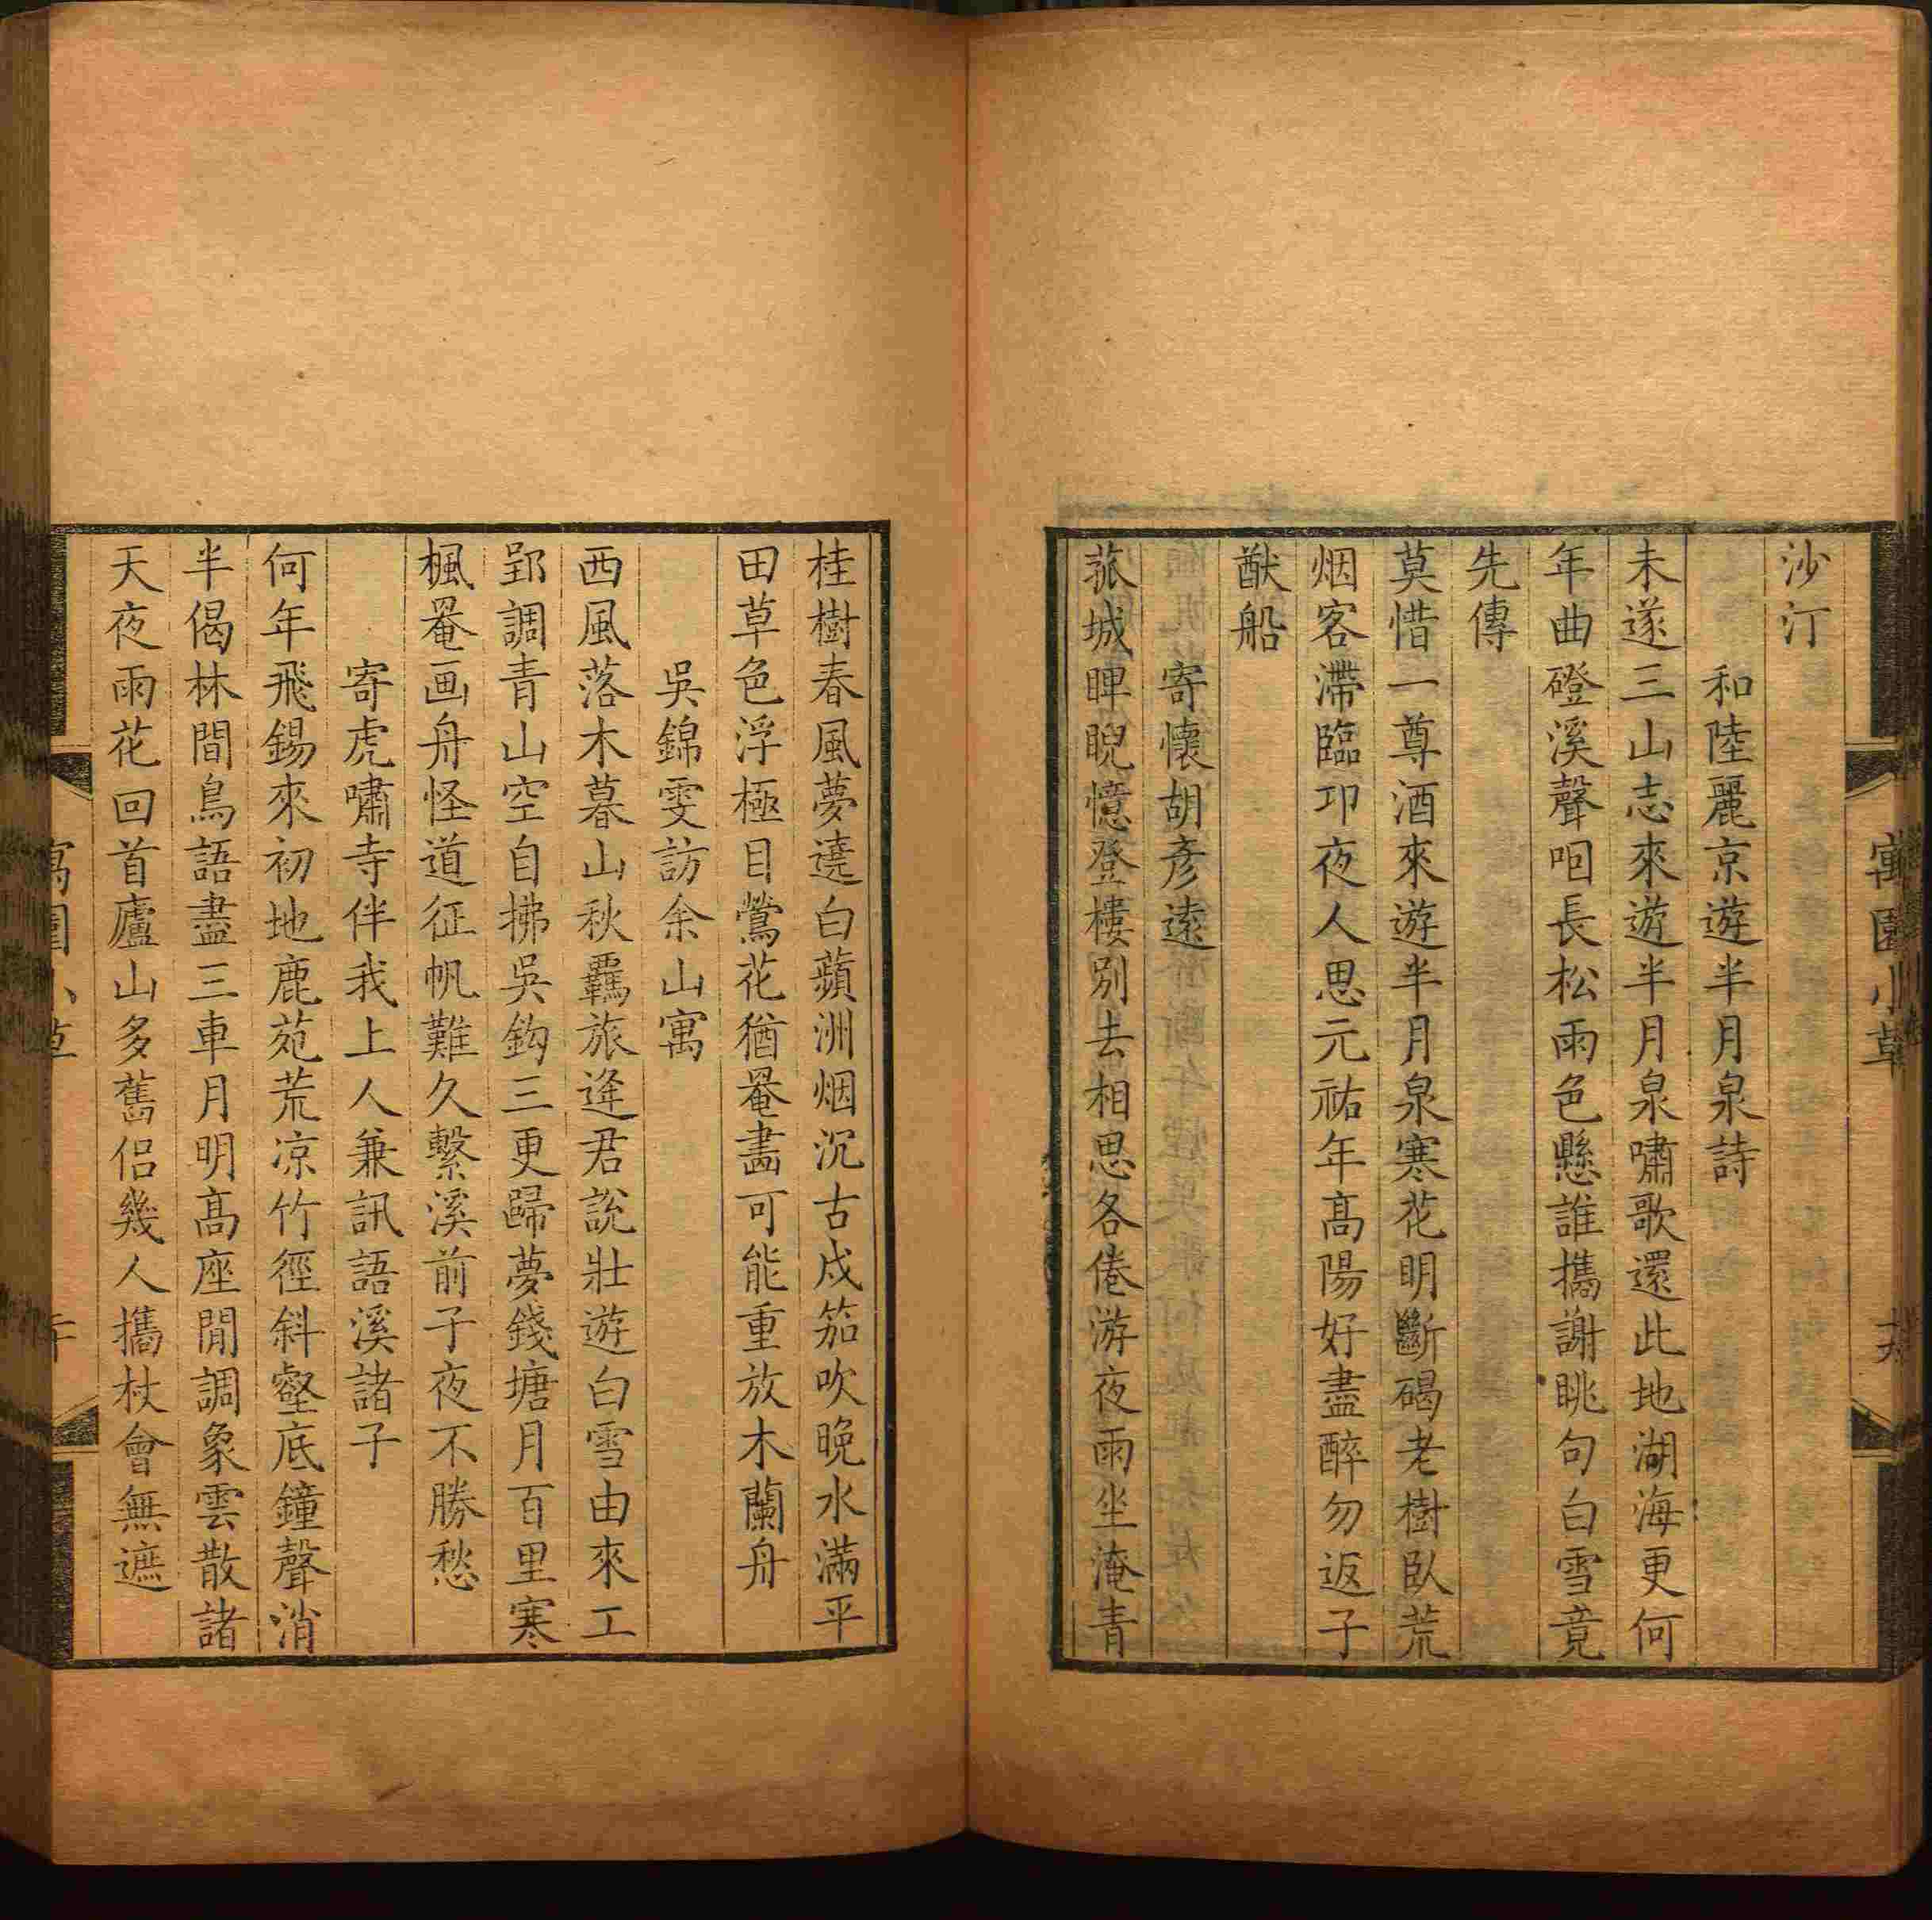 沙汀
和陸麗京遊半月泉詩
未遂三山志來遊半月泉嘯歌還此地湖海更何
年曲磴溪聲咽長松雨色懸誰攜謝眺句白雪竟
先傳
莫惜一尊酒來遊半月泉寒花明斷碣老樹臥荒
烟客滯臨卭夜人思元祐年高陽好盡醉勿返子
猷船
寄懷胡彥遠
菰城睥睨憶登樓別去相思各倦游夜雨坐淹青
寓園小草
桂樹春風夢遶白蘋洲烟沉古戍笳吹晚水滿平
田草色浮極目鶯花猶罨畵可能重放木蘭舟
吳錦雯訪余山寓
西風落木暮山秋羈旅逢君說壯遊白雪由來工
郢調青山空自拂吳鈎三更歸夢錢塘月百里寒
楓罨画舟怪道征帆難久繫溪前子夜不勝愁
寄虎嘯寺伴我上人兼訊語溪諸子
何年飛錫來初地鹿苑荒凉竹徑斜壑底鐘聲消
半偈林間鳥語盡三車月明高座閒調象雲散諸
天夜雨花回首廬山多舊侶幾人攜杖會無遮
寓園小草